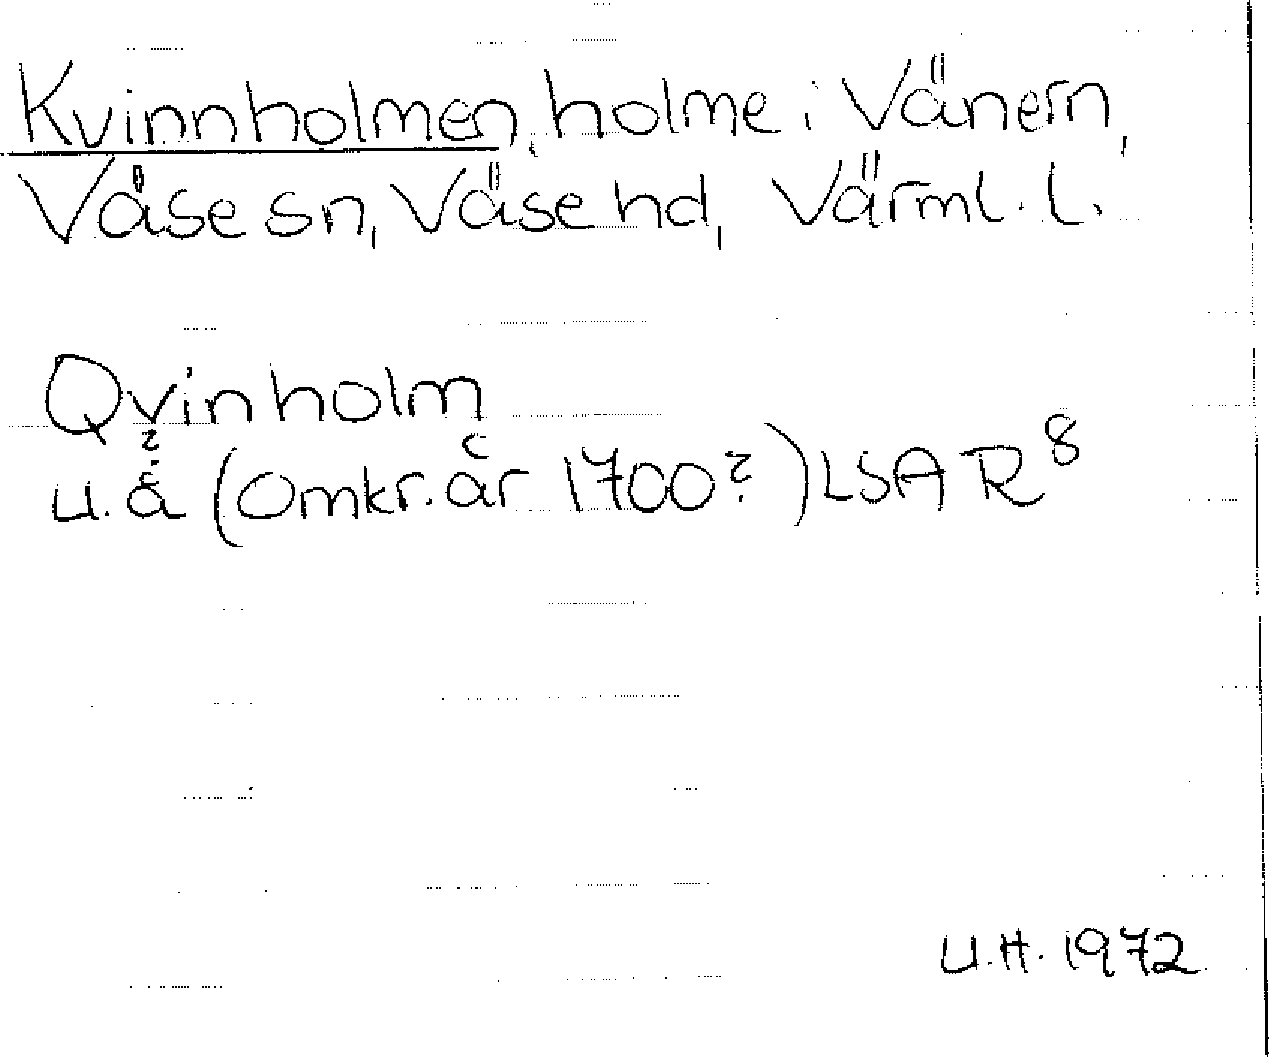 Kvinnholmen, holme i Vänern,
Väse sn, Väse hd, Värml. l.
Qvinholm
u.å (Omkr. år 1700?) LSA R8
U.H. 1972